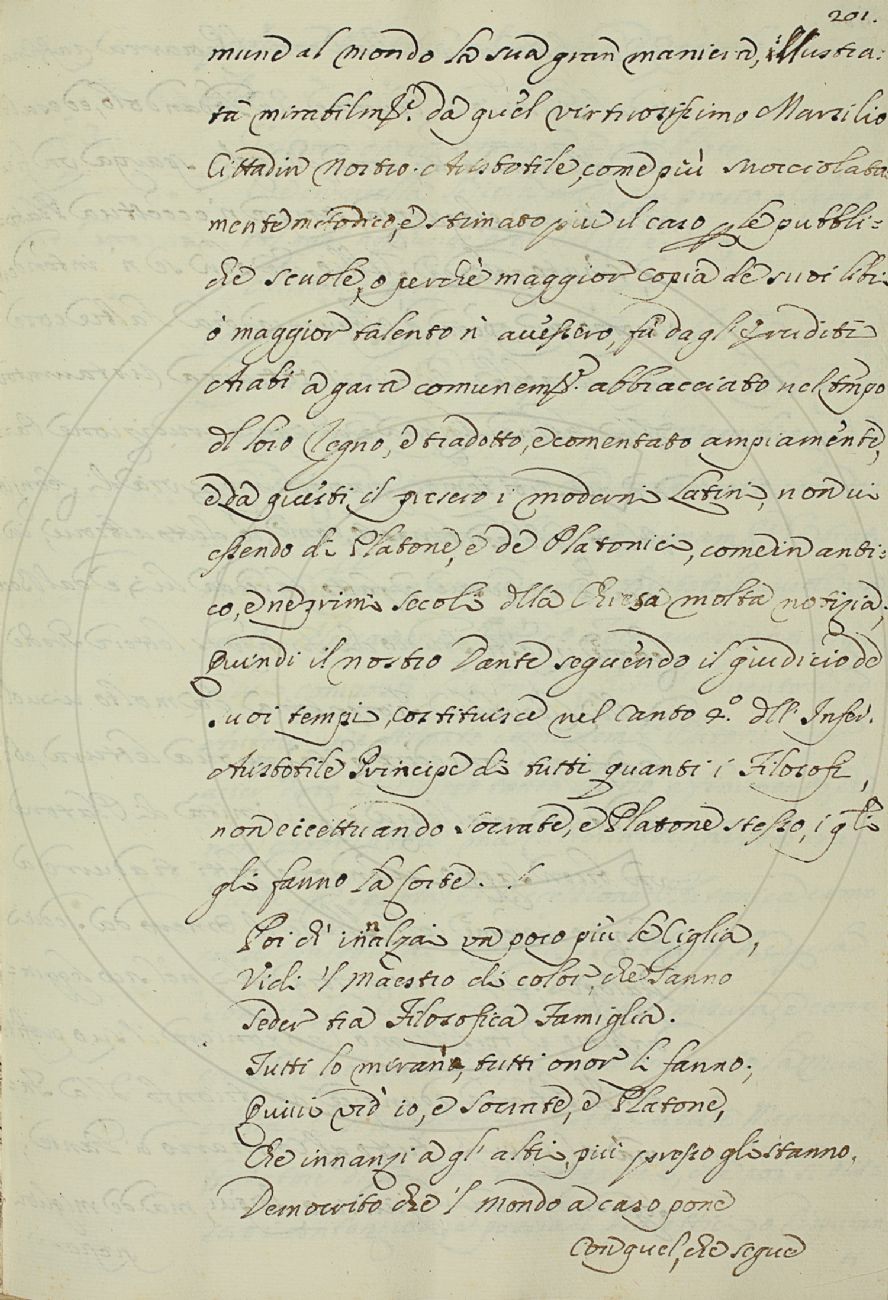 201.
mune al mondo la sua gran maniera, illustra-
ta mirabilmte. da quel virtuosissimo Marsilio
Cittadin Nostro. Aristotile, come più snocciolata
mente metodico, e stimato più il caso p le pubbli=
che scuole, o perchè maggior copia de suoi libri
ò maggior talento n' avessero, fù dagl' Eruditi
Arabi a gara comunemte. abbracciato nel tmpo
dl loro Regno, e tradotto, e comentato ampiamente,
e da questi il presero i moderni Latini, non vi
essendo di Platone, e de Platonici, come in anti=
co, e ne primi secoli dlla Chiesa molta notizia;
Quindi il nostro Dante seguendo il giudicio de
suoi tempi, costituisce nel Canto 4.º dll' Infer.
Aristotile Principe di tutti quanti i Filosofi,
non eccettuando Socrate, e Platone stesso, i qli
gli fanno la Corte.
Poi ch' innalzai un poco più le Ciglia,
Vidi 'l Maestro di color, che sanno
Seder tra Filosofica Famiglia.
Tutti lo miran, tutti onor li fanno;
Quivi vid' io, e Socrate, e Platone,
Che innanzi a gl' altri più presso gli stanno.
Democrito che 'l Mondo a caso pone
Con quel, che segue